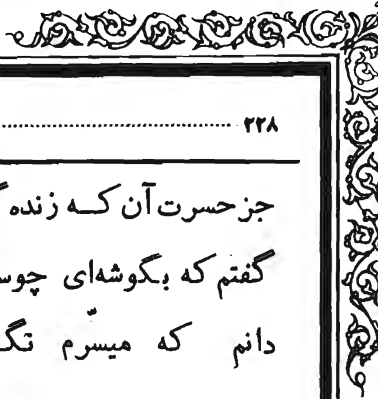 ۲۲۸
جز حسرت آن که زنده
گفتم که بگوشه‌ای
دانم که میسّرم